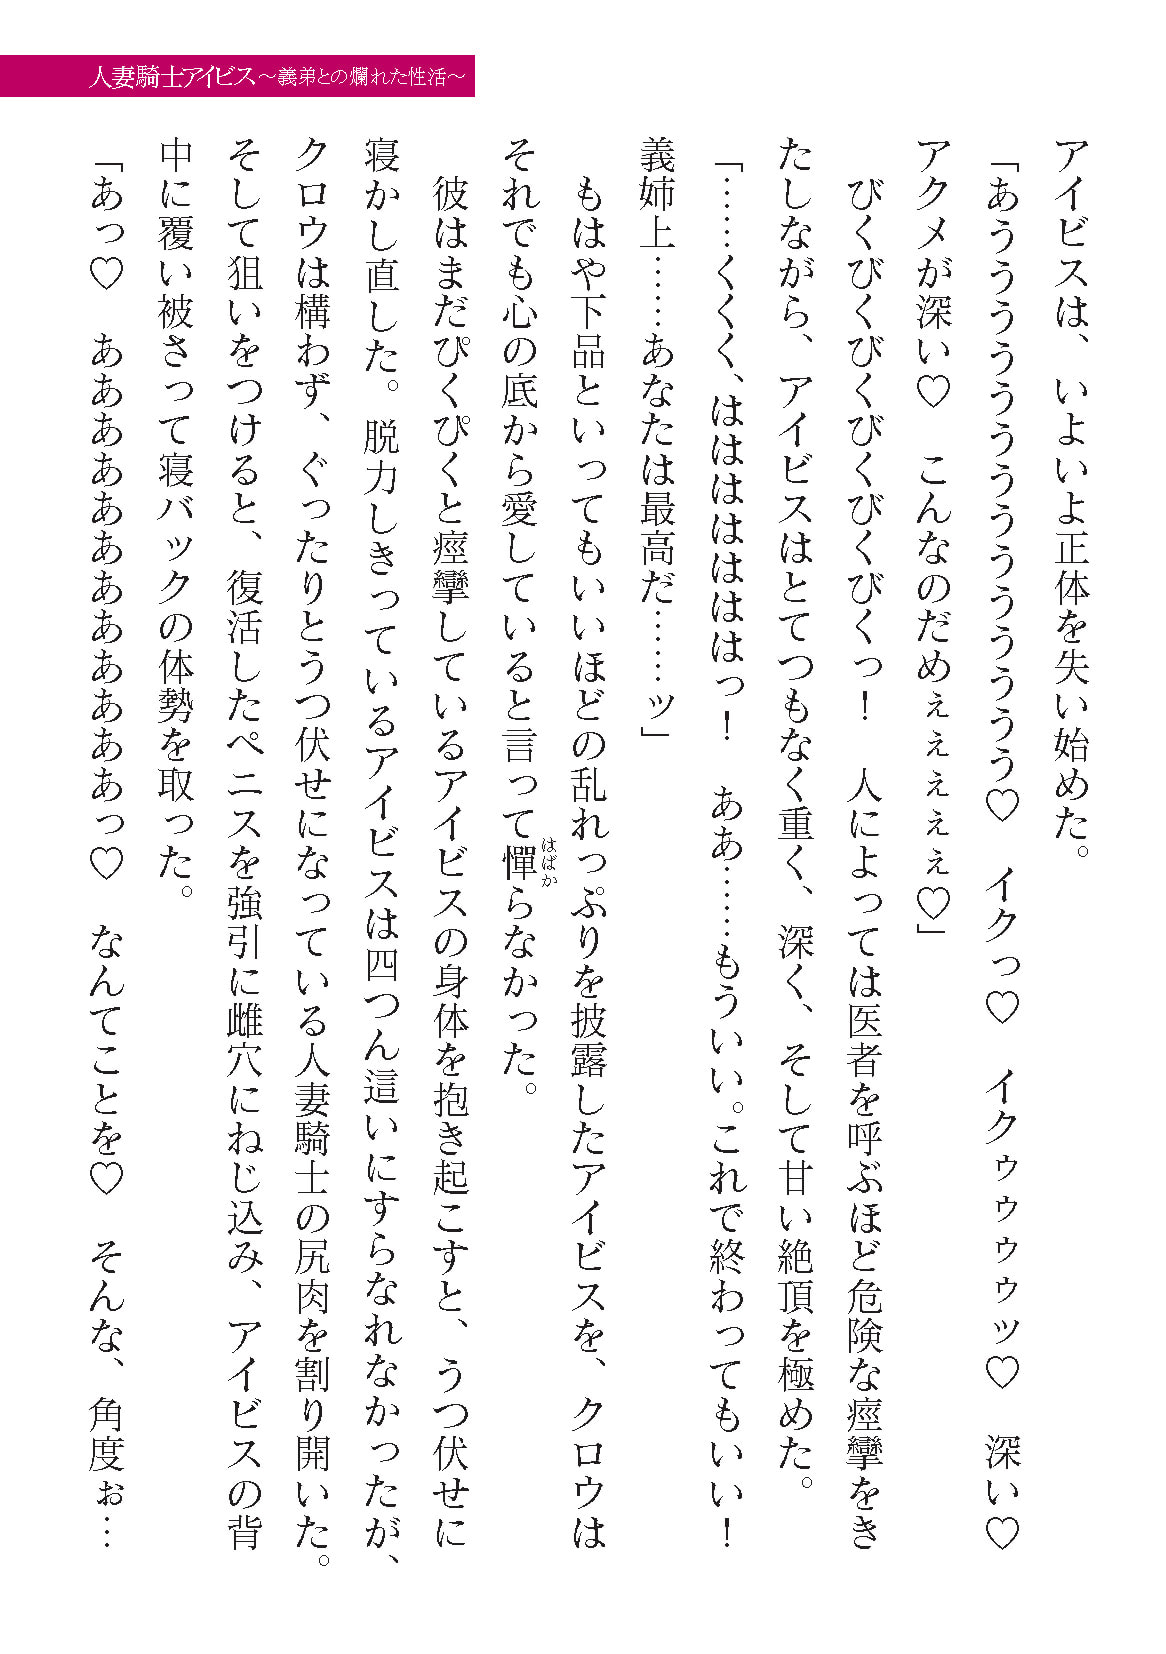 人妻騎士アイビス～義弟との爛れた性活～
アイビスは、いよいよ正体を失い始めた。
「あうううううううううううううう♡　イクっ♡　イクゥゥゥゥッ♡　深い♡
アクメが深い♡　こんなのだめぇぇぇぇぇ♡」
　びくびくびくびくびくびくっ！　人によっては医者を呼ぶほど危険な痙攣をき
たしながら、アイビスはとてつもなく重く、深く、そして甘い絶頂を極めた。
「……くくく、はははははははっ！　ああ……もういい。これで終わってもいい！
義姉上……あなたは最高だ……ッ」
　もはや下品といってもいいほどの乱れっぷりを披露したアイビスを、クロウは
それでも心の底から愛していると言って憚らなかった。
はばか
　彼はまだぴくぴくと痙攣しているアイビスの身体を抱き起こすと、うつ伏せに
寝かし直した。脱力しきっているアイビスは四つん這いにすらなれなかったが、
クロウは構わず、ぐったりとうつ伏せになっている人妻騎士の尻肉を割り開いた。
そして狙いをつけると、復活したペニスを強引に雌穴にねじ込み、アイビスの背
中に覆い被さって寝バックの体勢を取った。
「あっ♡　ああああああああああああっ♡　なんてことを♡　そんな、角度ぉ…